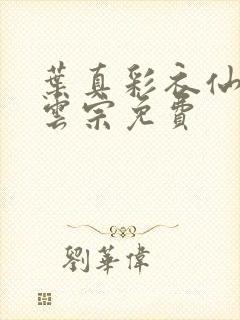 葉真彩衣仙
雲宗免費
劉華偉